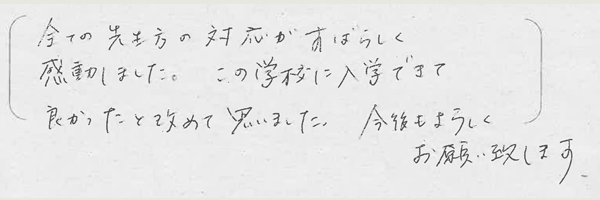 全ての先生方の対応がすばらしく
感動しました。この学校に入学できて
良かったと改めて思いました、今後もよろしく
お願い致します、